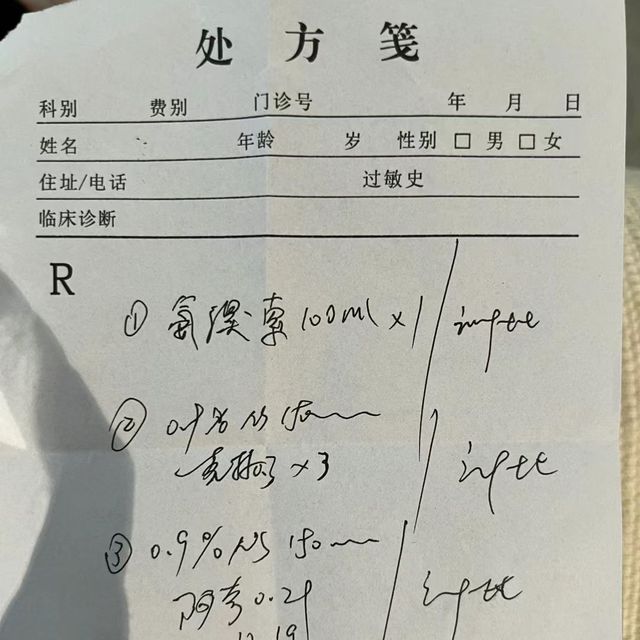 处方笺
科别 费别 门诊号 年 月 日
姓名 年龄 岁 性别 □ 男 □ 女
住址/电话 过敏史
临床诊断
R
① 氨溴索 100ml ×1
② 0.9% NS 150
×3
③ 0.9% NS 150
阿奇 0.2